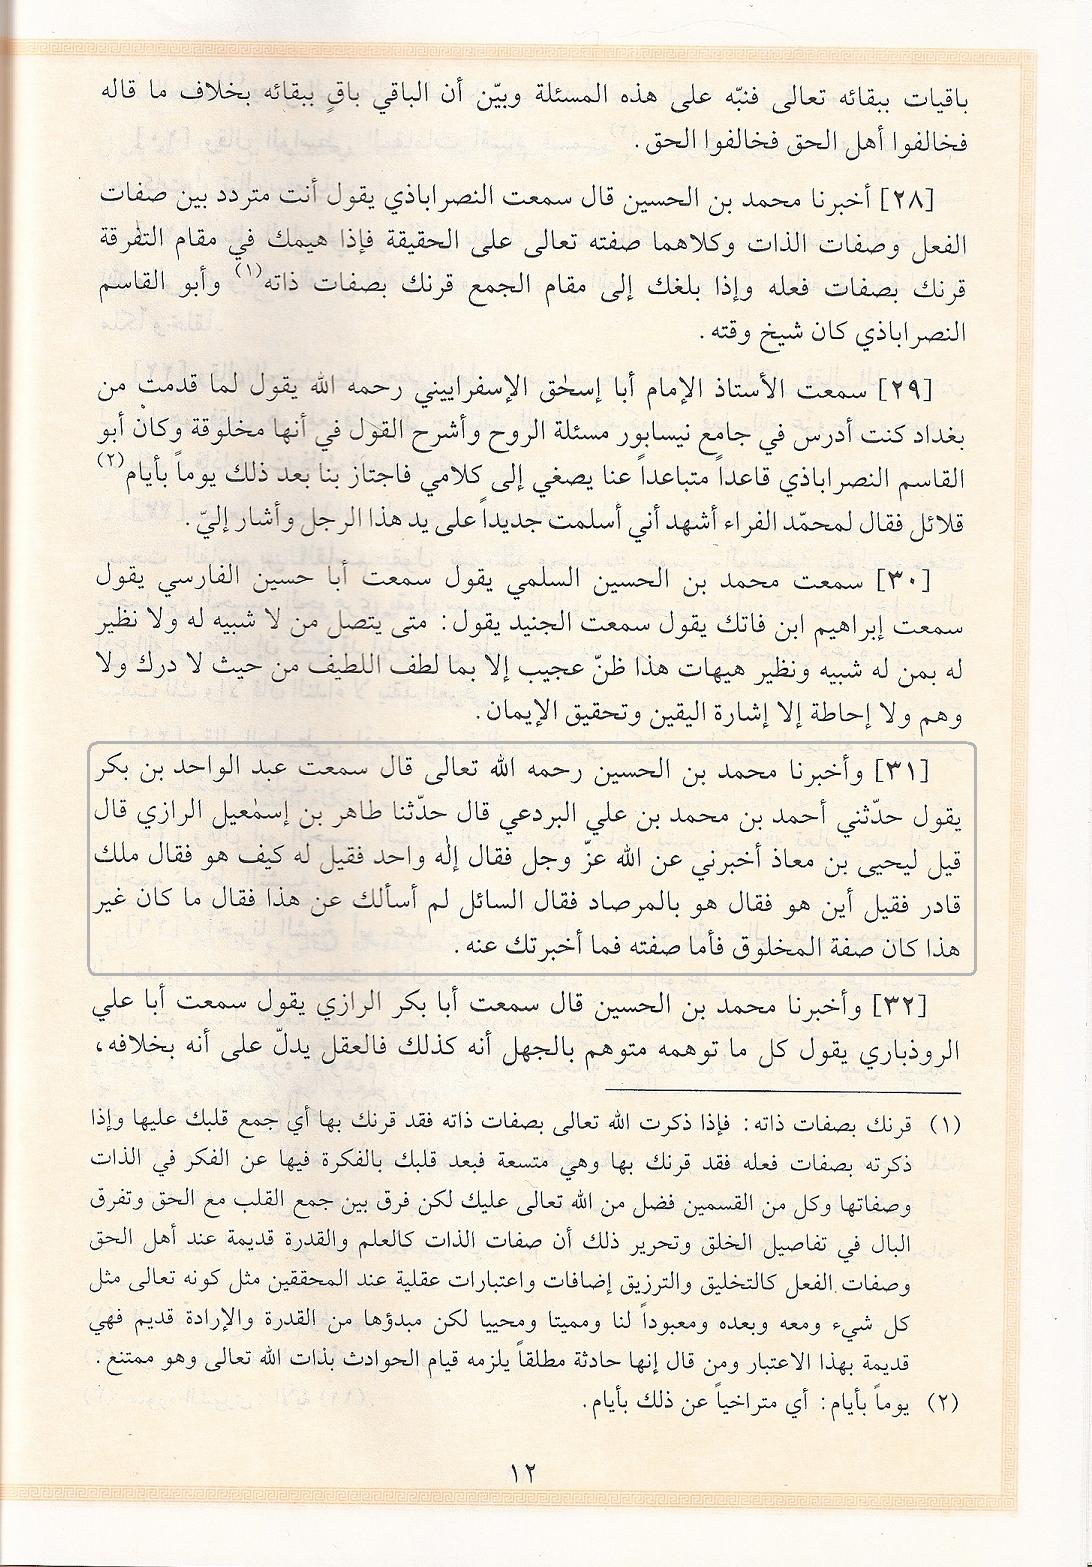 باقيات ببقائه تعالى فنبّه على هذه المسئلة وبيّن أن الباقي باقٍ ببقائه بخلاف ما قاله
فخالفوا أهل الحق فخالفوا الحق.
[٢٨] أخبرنا محمد بن الحسين قال سمعت النصراباذي يقول أنت متردد بين صفات
الفعل وصفات الذات وكلاهما صفته تعالى على الحقيقة فإذا هيمك في مقام التفرقة
قرنك بصفات فعله وإذا بلغك إلى مقام الجمع قرنك بصفات ذاته(١) وأبو القاسم
النصراباذي كان شيخ وقته.
[٢٩] سمعت الأستاذ الإمام أبا إسحٰق الإسفراييني رحمه الله يقول لما قدمت من
بغداد كنت أدرس في جامع نيسابور مسئلة الروح وأشرح القول في أنها مخلوقة وكان أبو
القاسم النصراباذي قاعداً متباعداً عنا يصغي إلى كلامي فاجتاز بنا بعد ذلك يوماً بأيام(٢)
قلائل فقال لمحمّد الفراء أشهد أني أسلمت جديداً على يد هذا الرجل وأشار إليّ.
[٣٠] سمعت محمد بن الحسين السلمي يقول سمعت أبا حسين الفارسي يقول
سمعت إبراهيم ابن فاتك يقول سمعت الجنيد يقول: متى يتصل من لا شبيه له ولا نظير
له بمن له شبيه ونظير هيهات هذا ظنّ عجيب إلا بما لطف اللطيف من حيث لا درك ولا
وهم ولا إحاطة إلا إشارة اليقين وتحقيق الإيمان.
[٣١] وأخبرنا محمد بن الحسين رحمه الله تعالى قال سمعت عبد الواحد بن بكر
يقول حدّثني أحمد بن محمد بن علي البردعي قال حدّثنا طاهر بن إسمٰعيل الرازي قال
قيل ليحيى بن معاذ أخبرني عن الله عزّ وجل فقال إلٰه واحد فقيل له كيف هو فقال ملك
قادر فقيل أين هو فقال هو بالمرصاد فقال السائل لم أسألك عن هذا فقال ما كان غير
هذا كان صفة المخلوق فأما صفته فما أخبرتك عنه.
[٣٢] وأخبرنا محمد بن الحسين قال سمعت أبا بكر الرازي يقول سمعت أبا علي
الروذباري يقول كل ما توهمه متوهم بالجهل أنه كذلك فالعقل يدلّ على أنه بخلافه،
(١) قرنك بصفات ذاته: فإذا ذكرت الله تعالى بصفات ذاته فقد قرنك بها أي جمع قلبك عليها وإذا
ذكرته بصفات فعله فقد قرنك بها وهي متسعة فبعد قلبك بالفكرة فيها عن الفكر في الذات
وصفاتها وكل من القسمين فضل من الله تعالى عليك لكن فرق بين جمع القلب مع الحق وتفرق
البال في تفاصيل الخلق وتحرير ذلك أن صفات الذات كالعلم والقدرة قديمة عند أهل الحق
وصفات الفعل كالتخليق والترزيق إضافات واعتبارات عقلية عند المحققين مثل كونه تعالى مثل
كل شيء ومعه وبعده ومعبوداً لنا ومميتا ومحييا لكن مبدؤها من القدرة والإرادة قديم فهي
قديمة بهذا الاعتبار ومن قال إنها حادثة مطلقاً يلزمه قيام الحوادث بذات الله تعالى وهو ممتنع.
(٢) يوماً بأيام: أي متراخياً عن ذلك بأيام.
١٢